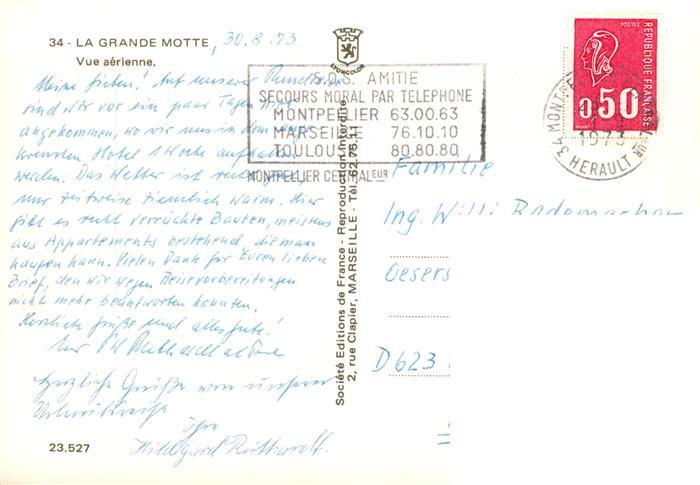 34 - LA GRANDE MOTTE, 30.8.73
Vue aérienne.
LYONCOLOR
Meine Lieben! Auf unserer
sind wir vor ein paar Tagen hier
angekommen, wo wir uns in dem
Hotel 1 Woche aufhalten
werden. Das Wetter ist recht
nur zeitweise ziemlich warm. Hier
gibt es recht verrückte Bauten, meistens
aus Appartements bestehend, die man
kaufen kann. Vielen Dank für Euren lieben
Brief, den wir wegen Reisevorbereitungen
nicht mehr beantworten konnten.
Herzliche Grüße und alles gute!
Euer
Herzliche Grüße von unserer
Urlaubsreise
Ihre
Hildegard Ruthardt.
23.527
S.O.S. AMITIE
SECOURS MORAL PAR TELEPHONE
MONTPELLIER 63.00.63
MARSEILLE 76.10.10
TOULOUSE 80.80.80
MONTPELLIER CENTRALEUR
Société Editions de France - Reproduction interdite
2, rue Clapier, MARSEILLE - Tél. 62.75.11
POSTES
REPUBLIQUE FRANÇAISE
0.50
34 MONT
1973
HERAULT
Familie
Ing. Willi Rademacher
Oesers
D 623